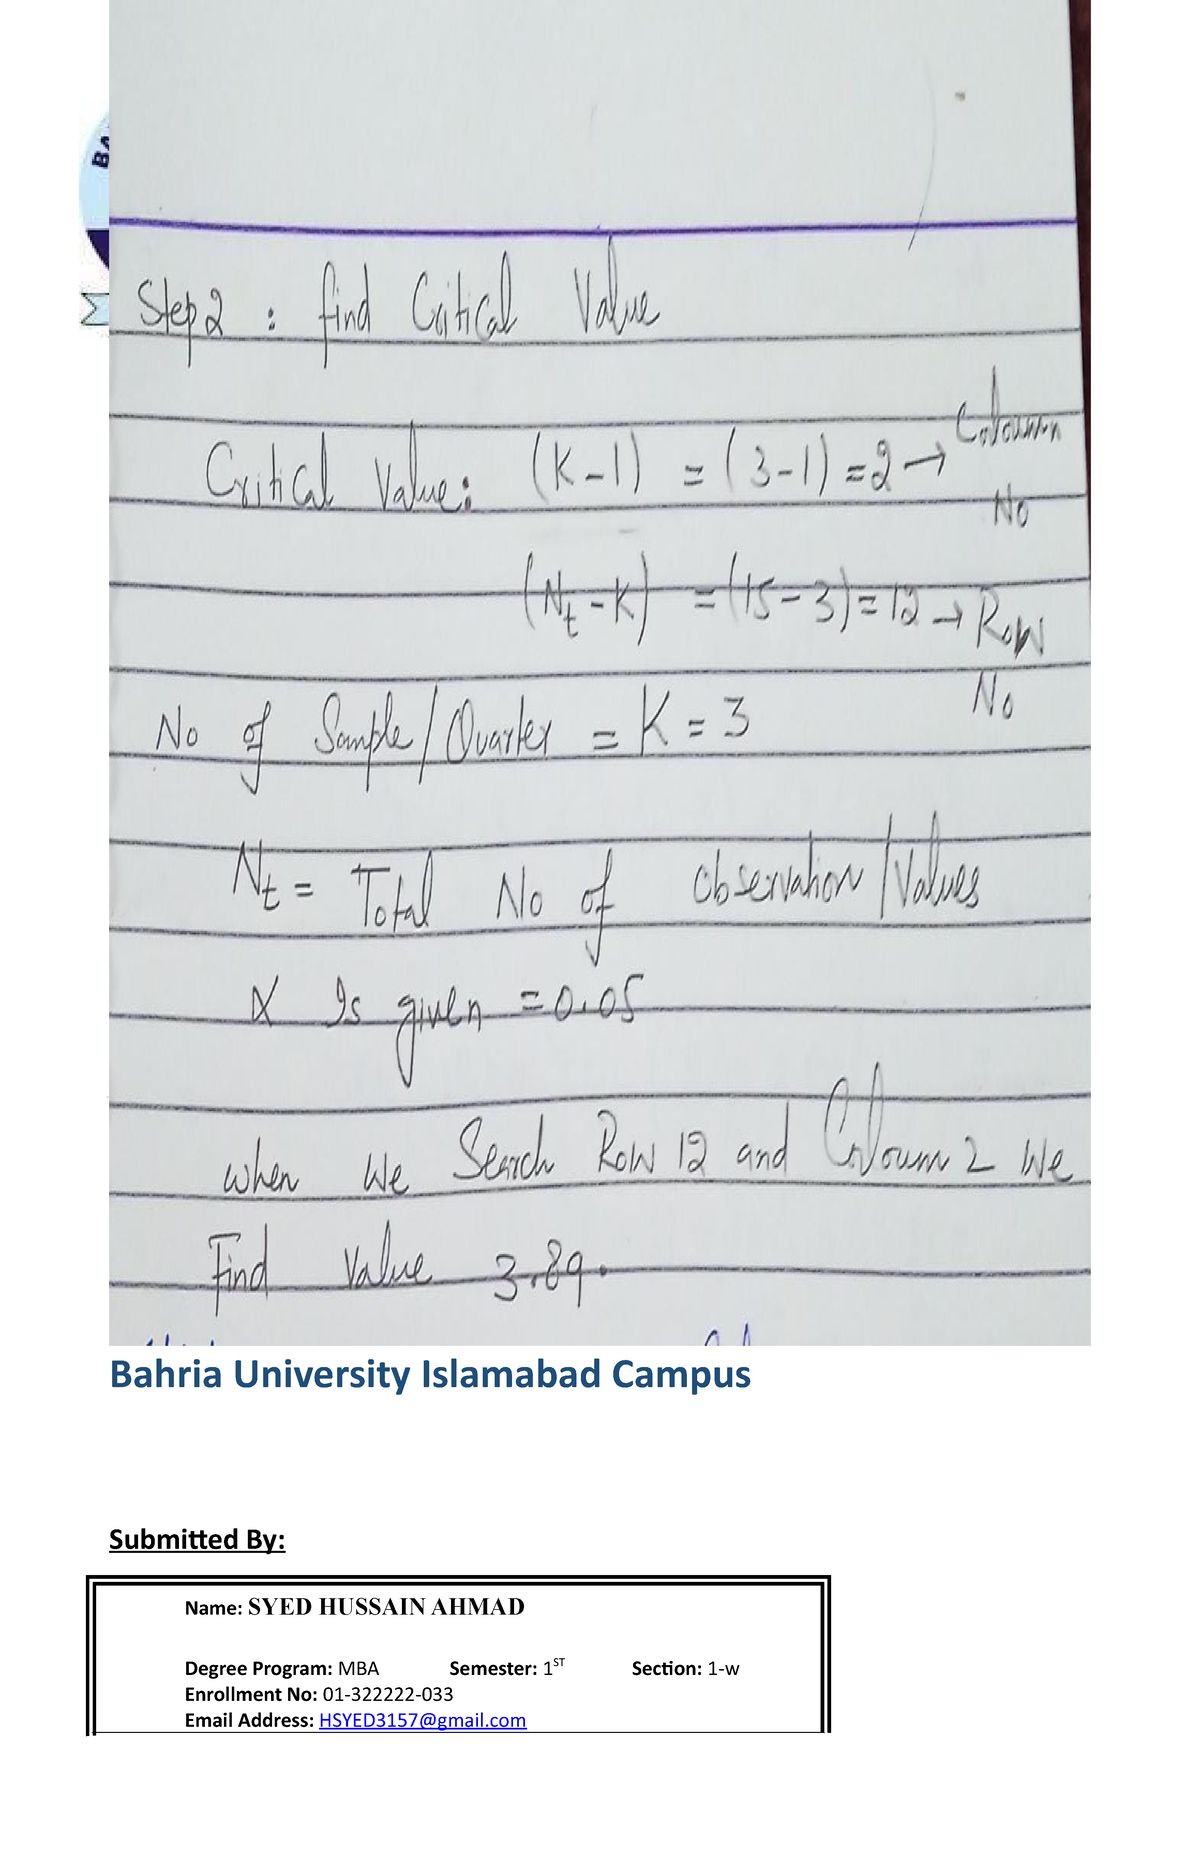 BA
Step 2 : find Critical Value
Critical Value: (K-1) = (3-1) = 2 → Coloumn
No
(Nt - K) = (15 - 3) = 12 → Row
No
No of Sample / Quarter = K = 3
Nt = Total No of observation / Values
α Is given = 0.05
when We Search Row 12 and Coloum 2 We
Find Value 3.89.
Bahria University Islamabad Campus
Submitted By:
Name: SYED HUSSAIN AHMAD
Degree Program: MBA Semester: 1ST Section: 1-w
Enrollment No: 01-322222-033
Email Address: HSYED3157@gmail.com